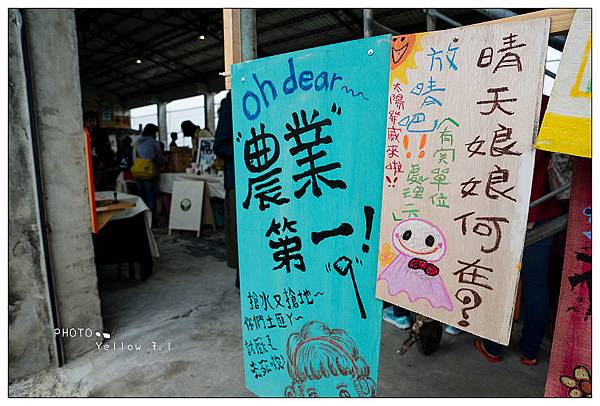 oh dear~~
"農業"
第一!
"q"
搶水又搶地~
你們土匪ㄚ~
放晴吧!!
太陽發威來啦!!
(有関單位
處理一下)
晴天娘娘何在?
PHOTO
Yellow 7.1